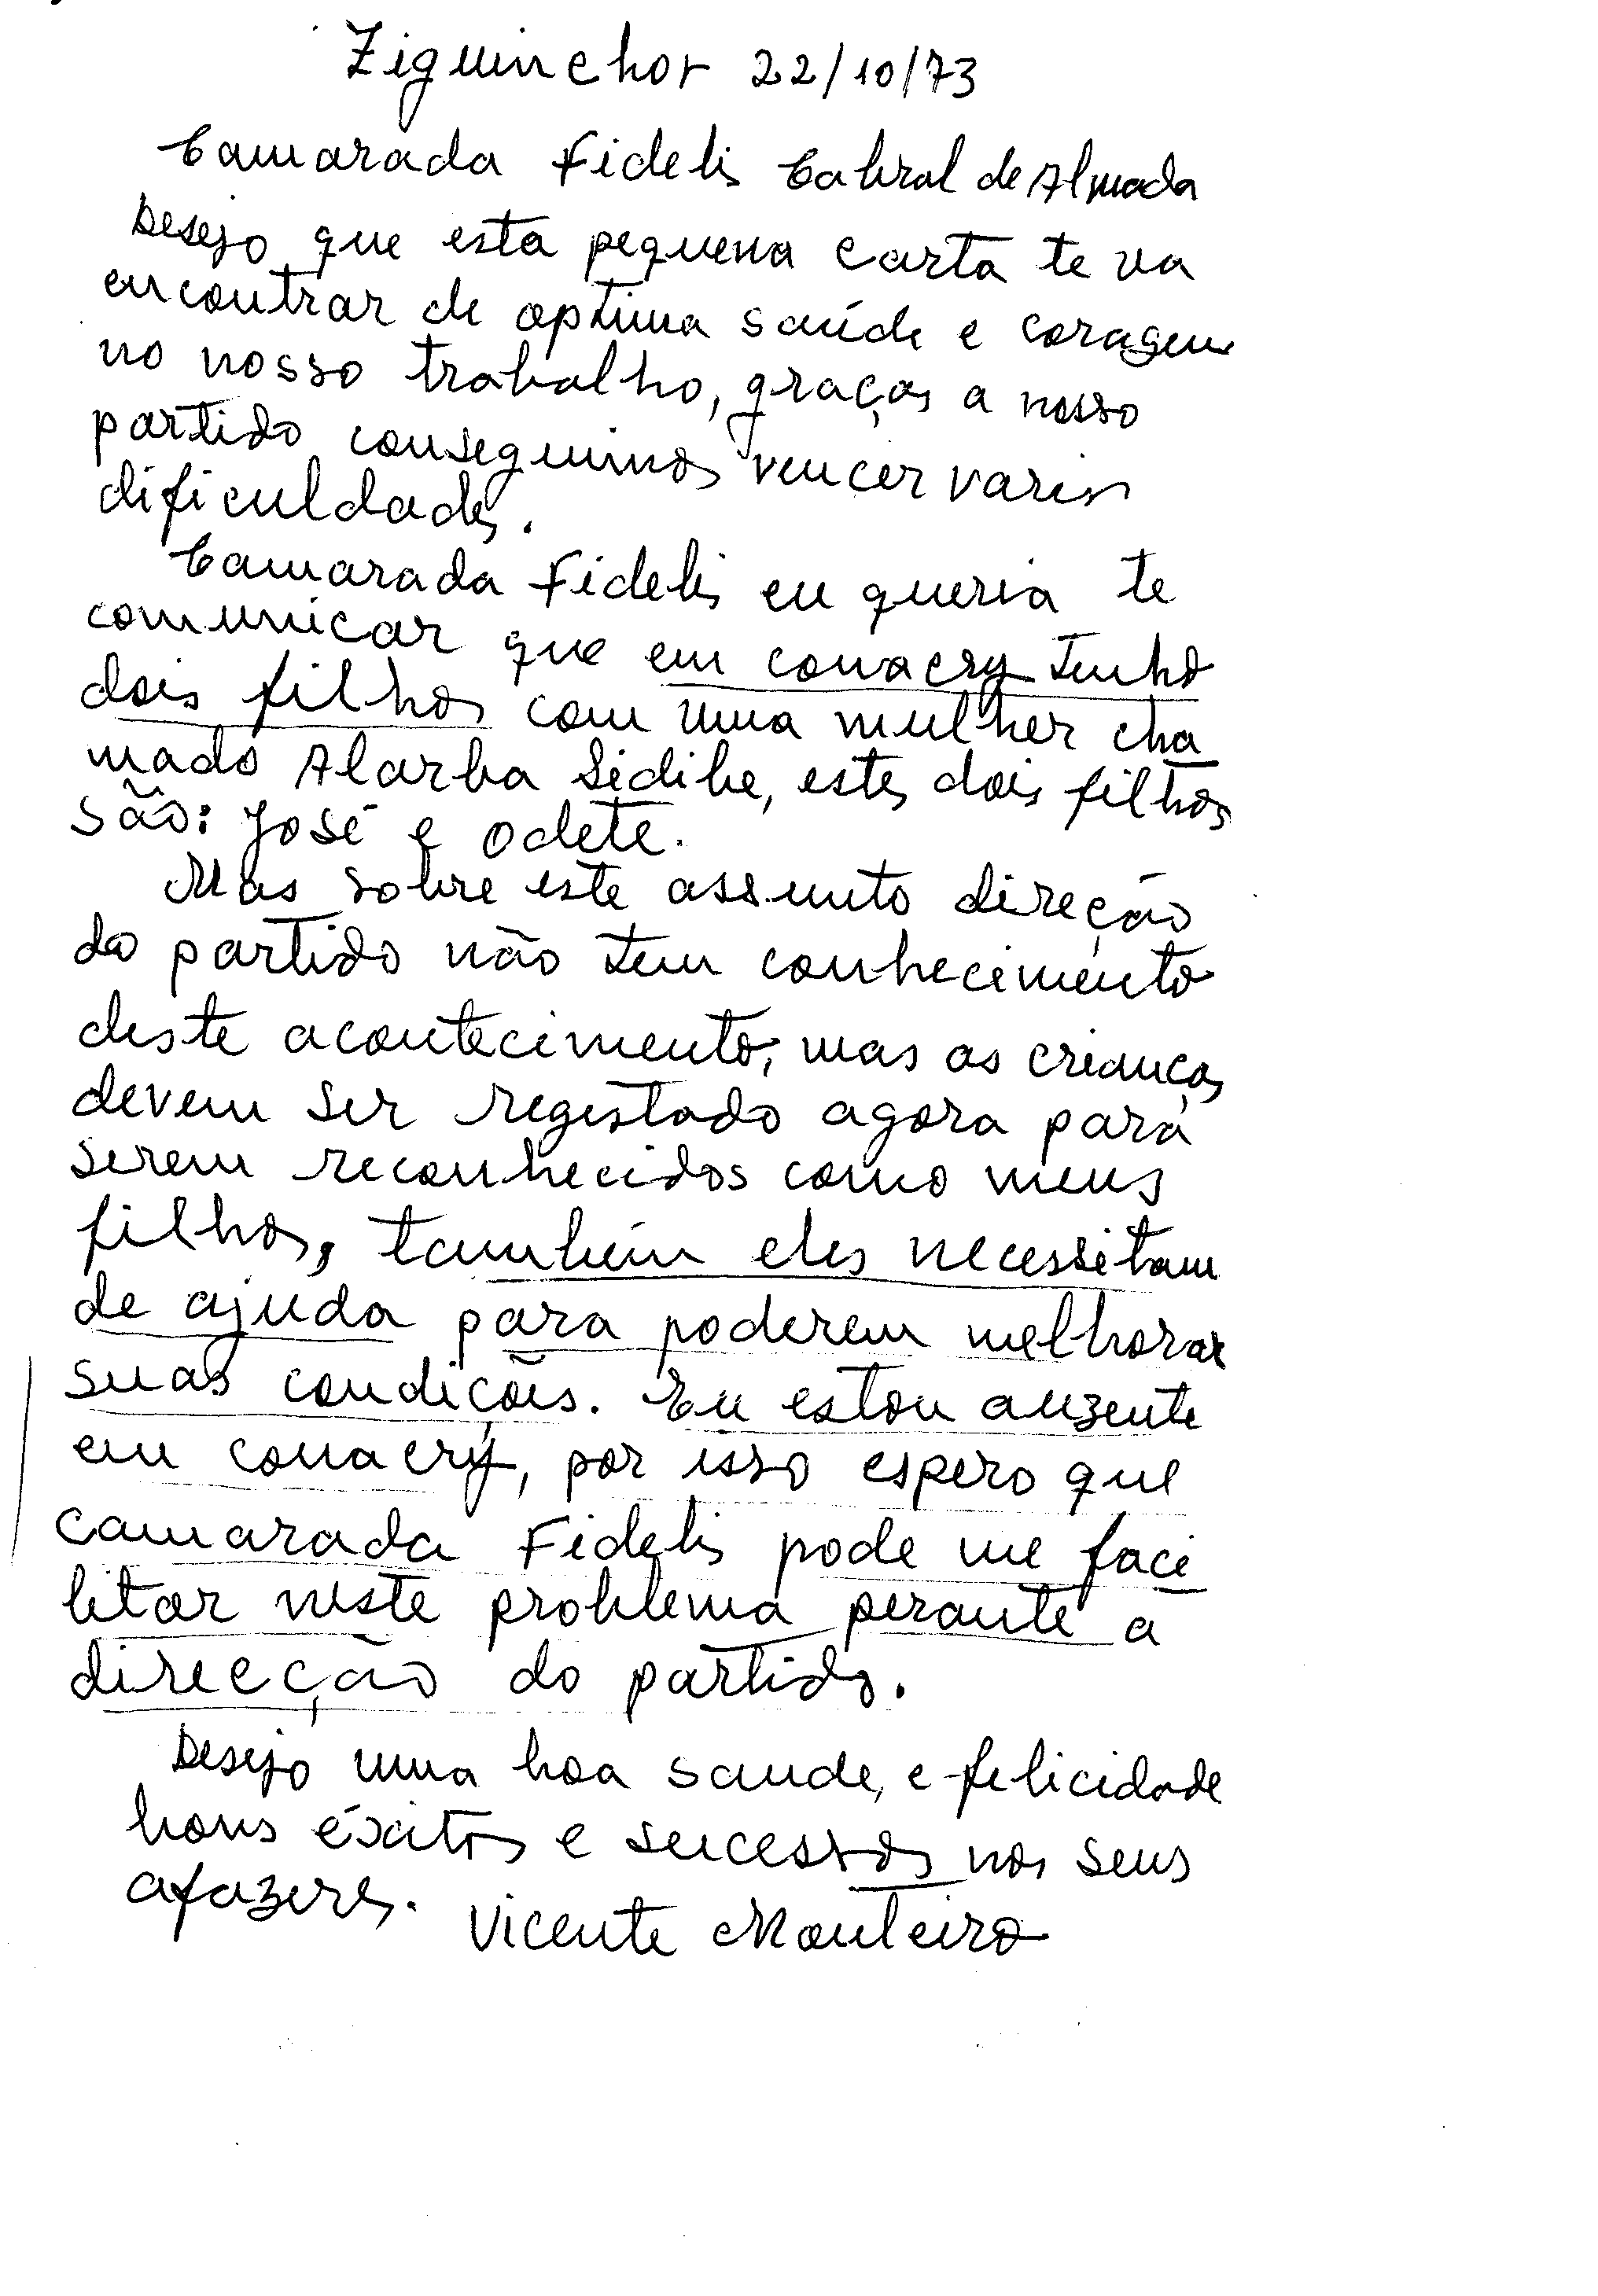 Ziguinchor 22/10/73
Camarada Fidelis Cabral de Almada
Desejo que esta pequena carta te va
encontrar de optima saúde e coragem
no nosso trabalho, graças a nosso
partido conseguimos vencer varias
dificuldades.
Camarada Fidelis eu queria te
comunicar que em conacry tenho
dois filhos com uma mulher cha
mado Alarba Sidibe, estes dois filhos
são: José e Odete.
Mas sobre este assunto direção
do partido não tem conhecimento
deste acontecimento, mas as crianças
devem ser registado agora para
serem reconhecidos como meus
filhos, também eles necessitam
de ajuda para poderem melhorar
suas condições. Eu estou auzente
em conacry, por isso espero que
camarada Fidelis pode me faci
litar neste problema perante a
direcção do partido.
Desejo uma boa saude, e felicidade
bons éxitos e sucessos nos seus
afazeres. Vicente Monteiro